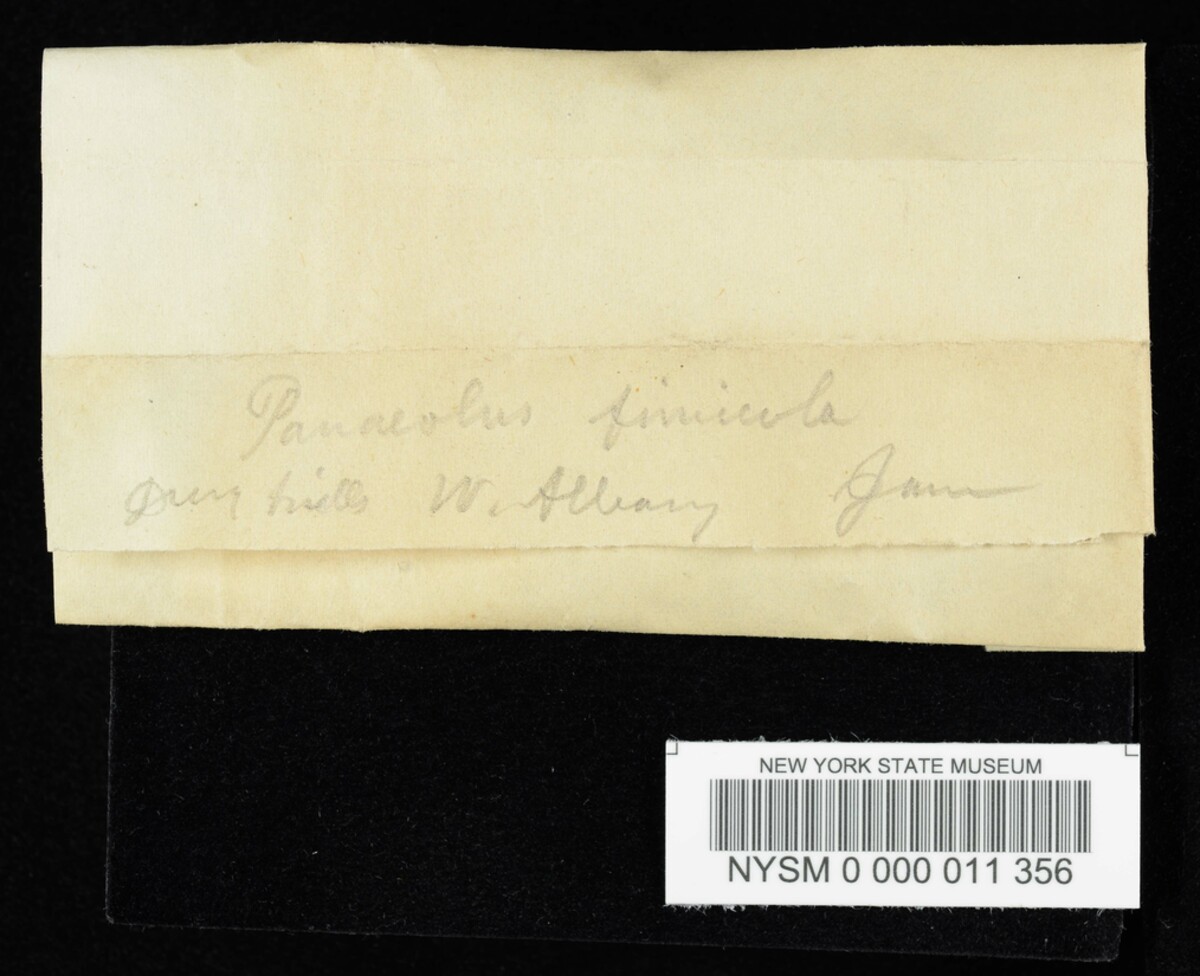 Panaeolus fimicola
Dung hills W. Albany June
NEW YORK STATE MUSEUM
NYSM 0 000 011 356